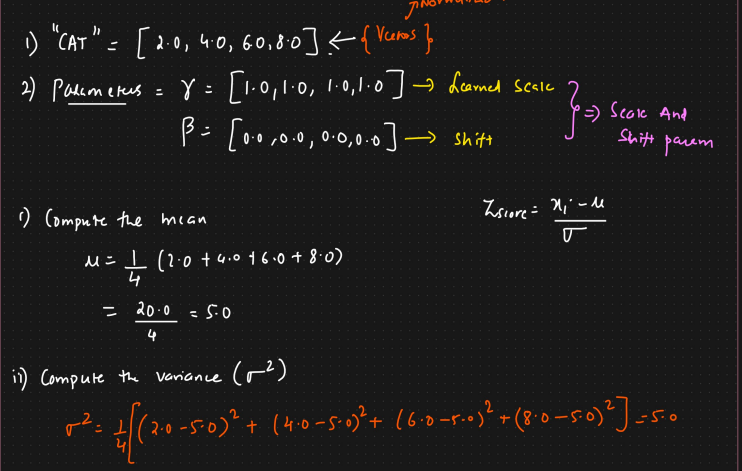 1) "CAT" = [2.0, 4.0, 6.0, 8.0] ← { Vectors }
2) Parameters = γ = [1.0, 1.0, 1.0, 1.0] → Learned Scale
β = [0.0, 0.0, 0.0, 0.0] → Shift
} ⇒ Scale And
Shift param
i) Compute the mean
Zscore = xi - μ / σ
μ = 1/4 (2.0 + 4.0 + 6.0 + 8.0)
= 20.0/4 = 5.0
ii) Compute the variance (σ²)
σ² = 1/4 [(2.0-5.0)² + (4.0-5.0)² + (6.0-5.0)² + (8.0-5.0)²] = 5.0